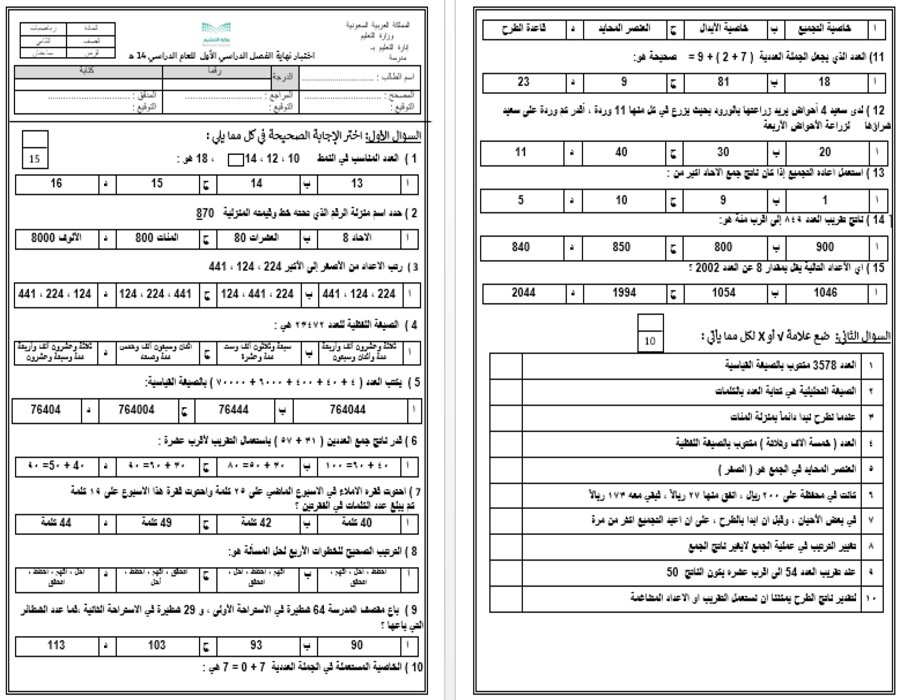 المملكة العربية السعودية
وزارة التعليم
إدارة تعليم بـ
مدرسة
وزارة التعليم
المادة رياضيات
الصف الثاني
الزمن ساعتان
اختبار نهاية الفصل الدراسي الأول للعام الدراسي 14 هـ
اسم الطالب : الدرجة رقما كتابة
المصحح : المراجع : المدقق :
التوقيع : التوقيع : التوقيع :
السؤال الأول: اختر الإجابة الصحيحة في كل مما يأتي :
15
1 ) العدد المناسب في النمط 10 ، 12 ، 14 ، 18 هو :
أ 13 ب 14 ج 15 د 16
2 ) حدد اسم منزلة الرقم الذي تحته خط وقيمته المنزلية 870
أ الاحاد 8 ب العشرات 80 ج المئات 800 د الألوف 8000
3 ) رتب الاعداد من الأصغر إلى الأكبر 224 ، 124 ، 441
أ 224 ، 124 ، 441 ب 224 ، 441 ، 124 ج 441 ، 224 ، 124 د 124 ، 224 ، 441
4 ) الصيغة اللفظية للعدد ٢٣٤٧٢ هي :
أ ثلاثة وعشرون ألف وأربعة مئة وأثنان وسبعون ب سبعة وثلاثون ألف وست مئة وعشرة ج اثنان وسبعون ألف وخمس مئة وتسعة د ثلاثة وعشرون ألف وأربعة مئة وسبعة وعشرون
5 ) يكتب العدد ( ٤ + ٤٠ + ٤٠٠ + ٦٠٠٠ + ٧٠٠٠٠ ) بالصيغة القياسية:
أ 764044 ب 76444 ج 764004 د 76404
6 ) قدر ناتج جمع العددين ( ٣١ + ٥٧ ) باستعمال التقريب لأقرب عشرة :
أ ٤٠ + ٦٠= ١٠٠ ب ٣٠ + ٥٠= ٨٠ ج ٣٠ + ٦٠= ٩٠ د ٤٠ + 50= ٩٠
7 ) احتوت فقره الاملاء في الاسبوع الماضي على ٢٥ كلمة واحتوت فقرة هذا الاسبوع على ١٩ كلمة
كم يبلغ عدد الكلمات في الفقرتين ؟
أ 40 كلمة ب 42 كلمة ج 49 كلمة د 44 كلمة
8 ) الترتيب الصحيح للخطوات الأربع لحل المسألة هو:
أ ب ج د
9 ) باع مقصف المدرسة 64 فطيرة في الاستراحة الأولى ، و 29 فطيرة في الاستراحة الثانية ،فما عدد الفطائر
التي باعها ؟
أ 90 ب 93 ج 103 د 113
10 ) الخاصية المستعملة في الجملة العددية 7 + 0 = 7 هي :
أ خاصية التجميع ب خاصية الأبدال ج العنصر المحايد د قاعدة الطرح
11) العدد الذي يجعل الجملة العددية ( 7 + 2 ) + 9 = صحيحة هو:
أ 18 ب 81 ج 9 د 23
12 ) لدى سعيد 4 أحواض يريد زراعتها بالورود بحيث يزرع في كل منها 11 وردة ، أقدر كم وردة على سعيد
شراؤها لزراعة الأحواض الأربعة
أ 20 ب 30 ج 40 د 11
13 ) استعمل اعاده التجميع إذا كان ناتج جمع الاحاد اكبر من :
أ 1 ب 9 ج 10 د 5
14 ) ناتج تقريب العدد ٨٤٩ إلى اقرب مئة هو:
أ 900 ب 800 ج 850 د 840
15 ) اي الأعداد التالية يقل بمقدار 8 عن العدد 2002 ؟
أ 1046 ب 1054 ج 1994 د 2044
السؤال الثاني: ضع علامة √ أو X لكل مما يأتي :
10
١ العدد 3578 مكتوب بالصيغة القياسية
٢ الصيغة التحليلية هي كتابة العدد بالكلمات
٣ عندما نطرح نبدا دائماً بمنزلة المئات
٤ العدد ( خمسة الاف وثلاثة ) مكتوب بالصيغة اللفظية
٥ العنصر المحايد في الجمع هو ( الصفر )
٦ كانت في محفظة على ٢٠٠ ريال ، انفق منها ٢٧ ريالاً ، فبقي معه ١٧٣ ريالاً
٧ في بعض الأحيان ، وقبل ان ابدا بالطرح ، على ان اعيد التجميع اكثر من مرة
٨ تغيير الترتيب في عملية الجمع لايغير ناتج الجمع
٩ عند تقريب العدد 54 الى اقرب عشره يكون الناتج 50
١٠ لتقدير ناتج الطرح يمكننا ان نستعمل التقريب او الاعداد المتناغمة